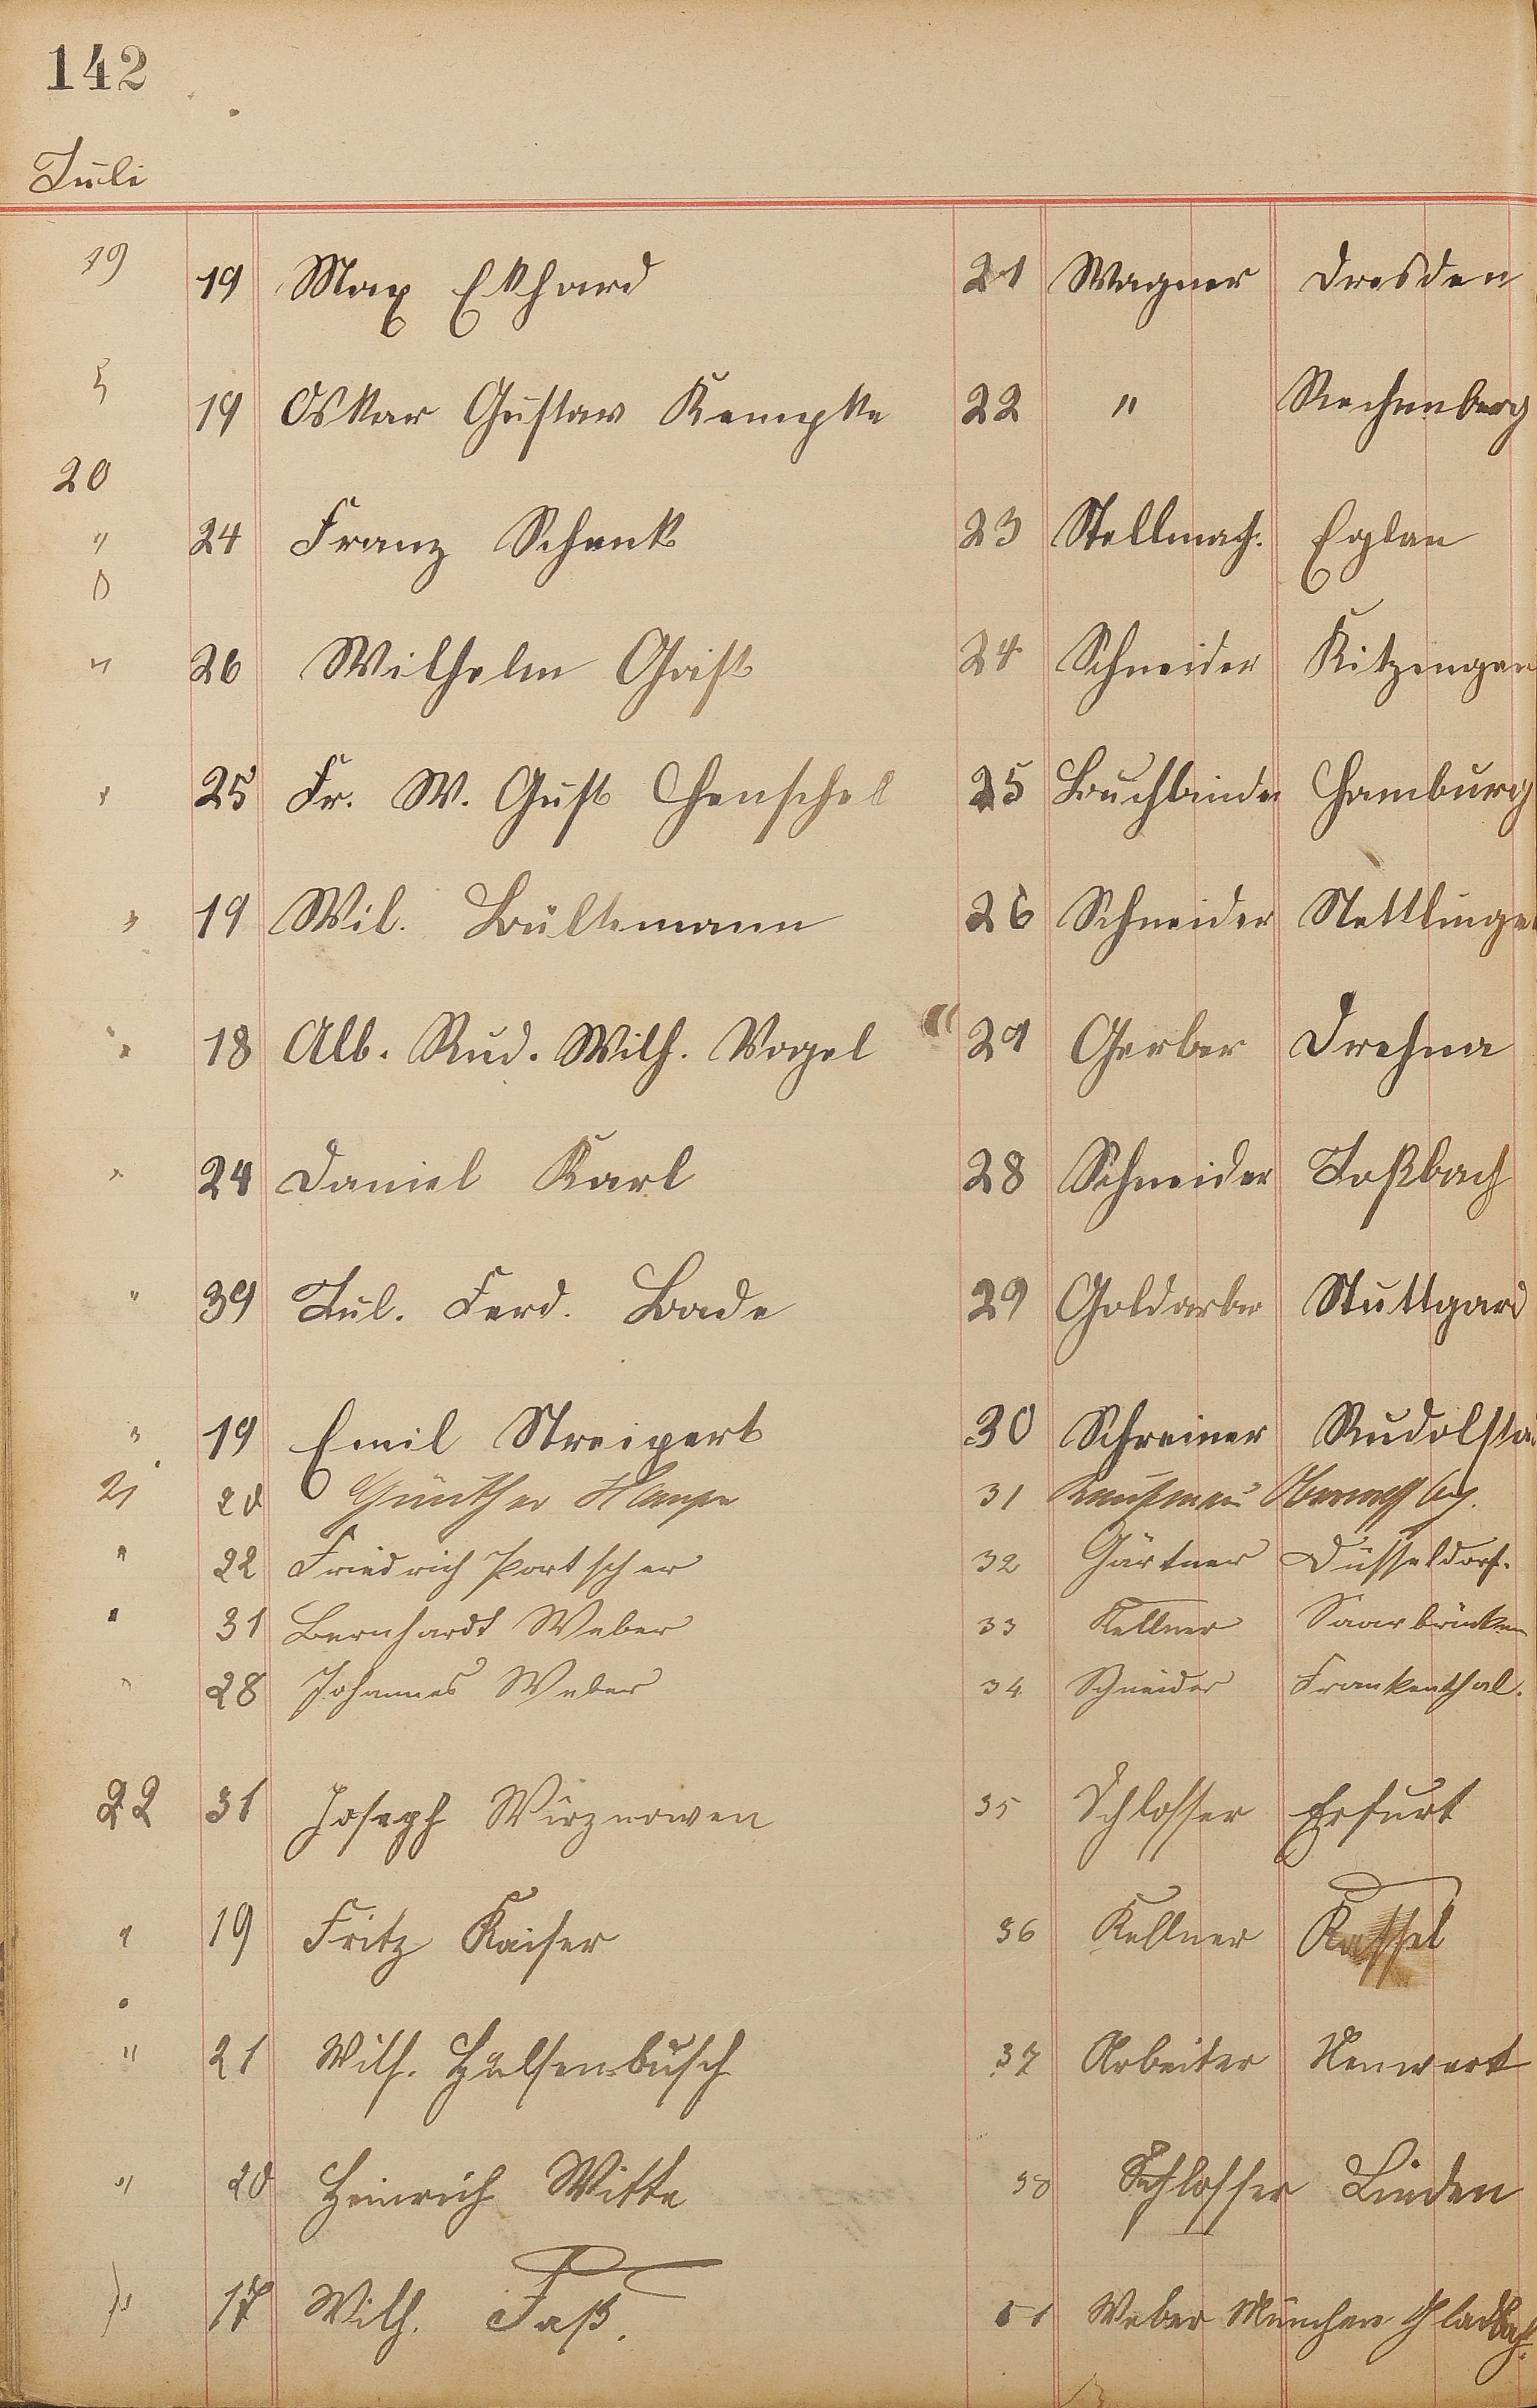 142
Juli
19 19 Max Ekhard 21 Wagner Dresden
" 19 Oskar Gustav Kempke 22 " Rechenberg
20
" 24 Franz Schenk 23 Stellmach. Eylau
" 26 Wilhelm Gast 24 Schneider Kitzingen
" 25 Fr. W. Gust Henschel 25 Buchbinder Hamburg
" 19 Wil. Bültemann 26 Schneider Nettlingen
" 18 Alb. Rud. Wilh. Vogel 27 Gerber Drehna
" 24 Daniel Karl 28 Schneider Toßbach
" 39 Jul. Ferd. Bade 29 Goldarber Stuttgard
" 19 Emil Streipert 30 Schreiner Rudolsta
21 20 Günther 31 Kaufmann
" 22 Friedrich Portscher 32 Gärtner Düsseldorf.
" 31 Bernhardt Weber 33 Kellner Saarbrücken
" 28 Johannes Weber 34 Schneider Frankenthal.
22 31 Joseph Wirznowen 35 Schlosser Erfurt
" 19 Fritz Kaiser 36 Kellner Kassel
" 21 Wilh. Hülsenbusch 37 Arbeiter
" 20 Heinrich Witte 38 Schlosser Linden
" 17 Wilh. Faß. Weber München Gladbach.